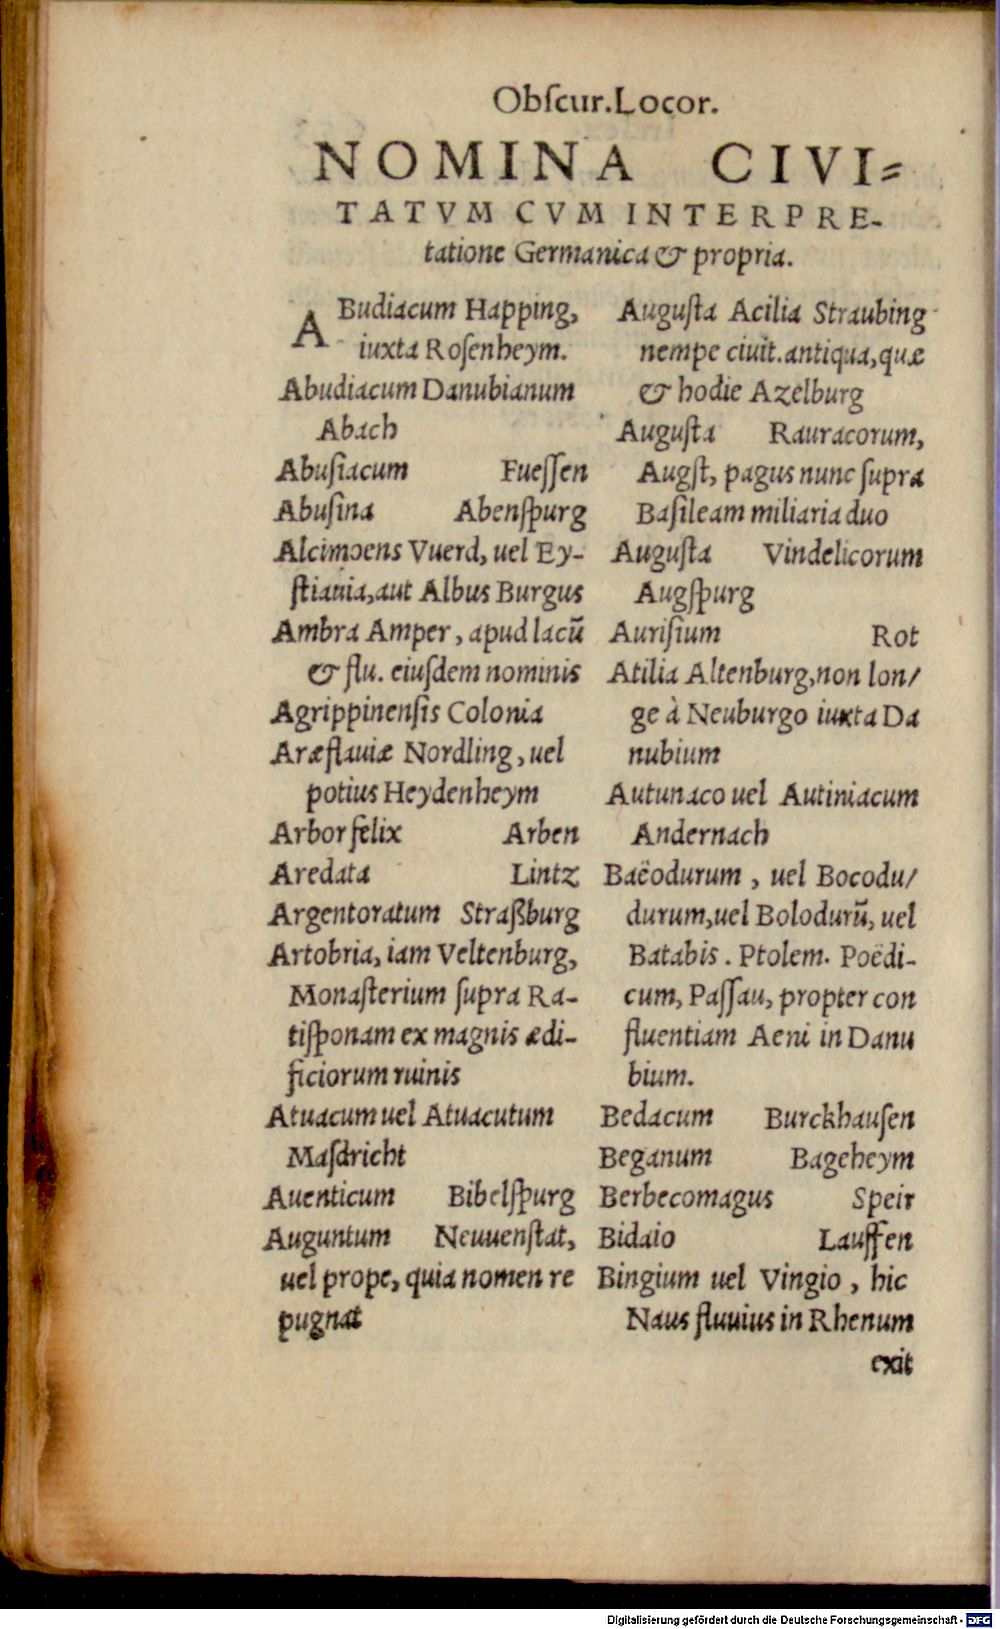 Obſcur.Locor.
NOMINA CIVI⸗
TATVM CVM INTERPRE-
tatione Germanica & propria.
ABudiacum Happing,
iuxta Roſenheym.
Abudiacum Danubianum
Abach
Abuſiacum Fueſſen
Abuſina Abenſpurg
Alcimoens Vuerd, uel Ey-
ſtiania, aut Albus Burgus
Ambra Amper, apud lacũ
& flu. eiuſdem nominis
Agrippinenſis Colonia
Aræflauiæ Nordling, uel
potius Heydenheym
Arbor felix Arben
Aredata Lintz
Argentoratum Straßburg
Artobria, iam Veltenburg,
Monaſterium ſupra Ra-
tiſponam ex magnis ædi-
ficiorum ruinis
Atuacum uel Atuacutum
Maſdricht
Auenticum Bibelſpurg
Auguntum Neuuenſtat,
uel prope, quia nomen re
pugnat
Auguſta Acilia Straubing
nempe ciuit. antiqua, quæ
& hodie Azelburg
Auguſta Rauracorum,
Augſt, pagus nunc ſupra
Baſileam miliaria duo
Auguſta Vindelicorum
Augſpurg
Auriſium Rot
Atilia Altenburg, non lon/
ge à Neuburgo iuxta Da
nubium
Autunaco uel Autiniacum
Andernach
Baëodurum, uel Bocodu/
durum, uel Bolodurũ, uel
Batabis. Ptolem. Poëdi-
cum, Paſſau, propter con
fluentiam Aeni in Danu
bium.
Bedacum Burckhauſen
Beganum Bageheym
Berbecomagus Speir
Bidaio Lauffen
Bingium uel Vingio, hic
Naus fluuius in Rhenum
exit
Digitalisierung gefördert durch die Deutsche Forschungsgemeinschaft - DFG